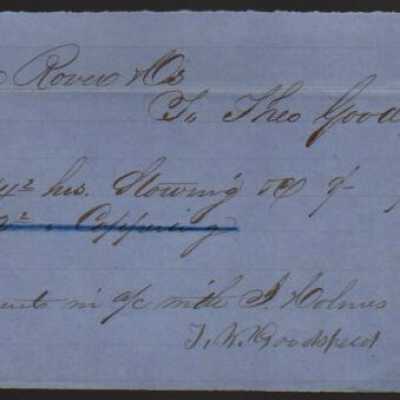 Rover &Os
To Theo Good
4² hrs. Stowing &c
² " Coppering
in a/c with J. Holmes
T. W. Goodspeed